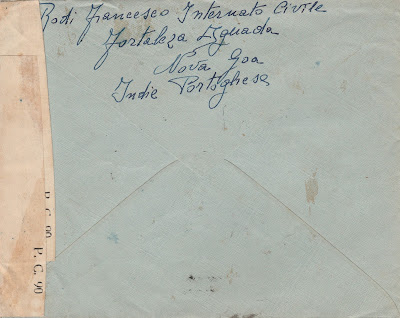 Rodi Francesco Internato Civile
Fortaleza Aguada
Nova Goa
Indie Portoghese
P. C. 90
P. C. 90